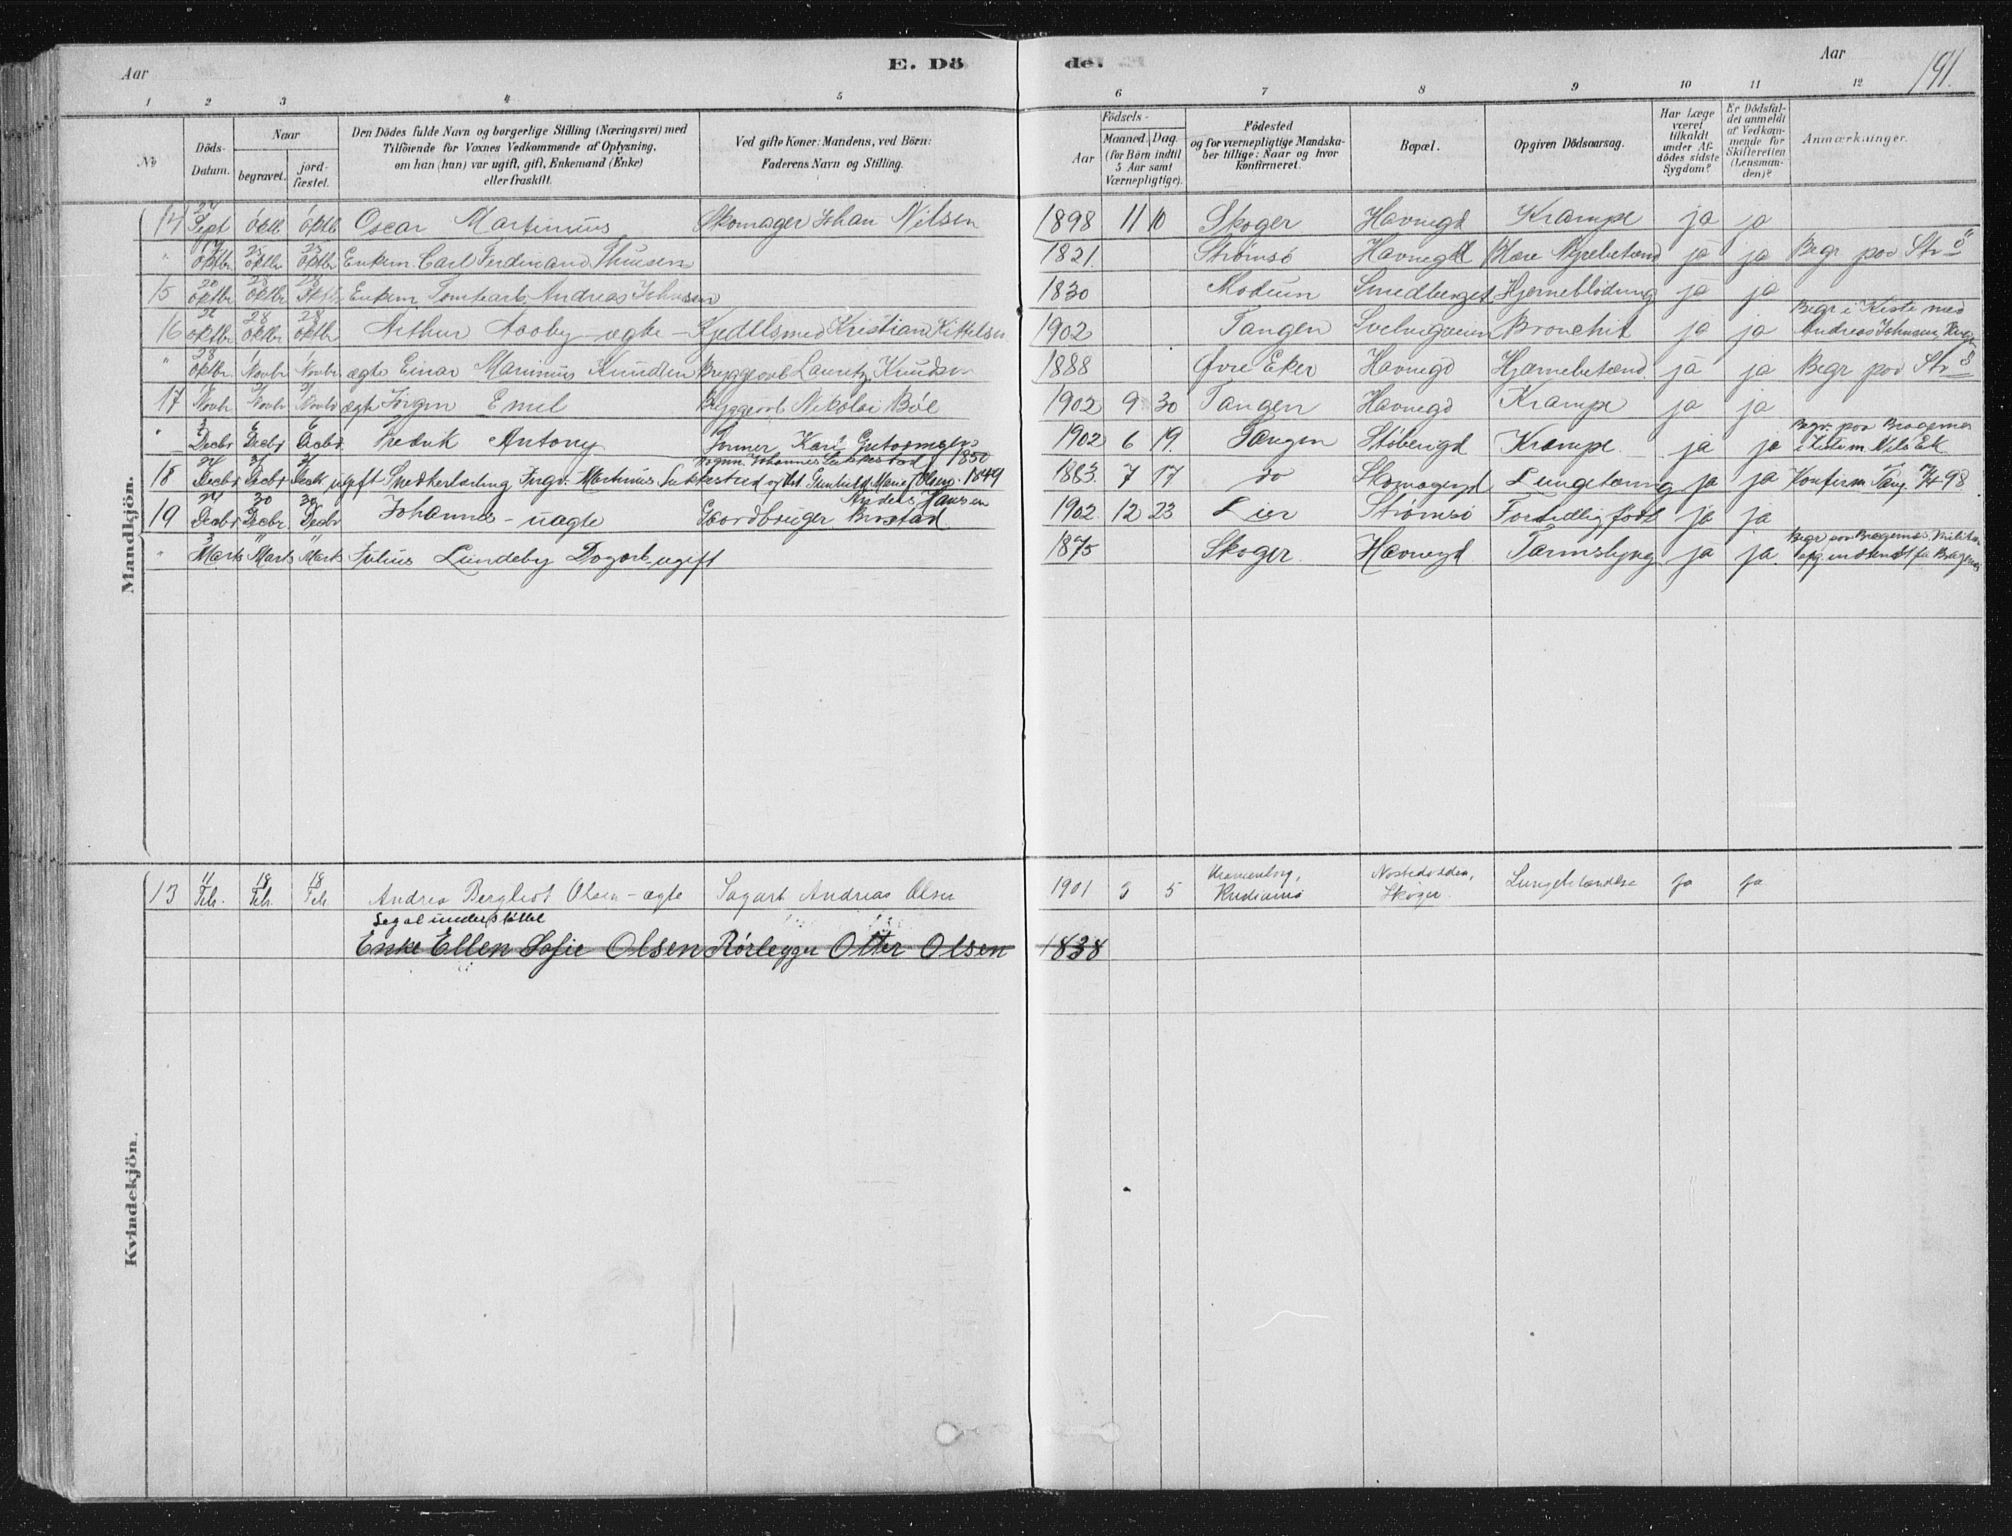 Aar
E. Dö
de.
Aar
191.
1 2 3 4 5 6 7 8 9 10 11 12
No
Döds-
Datum.
Naar
begravet.
jord-
fæstet.
Den Dödes fulde Navn og borgerlige Stilling (Næringsvei) med
Tilföiende for Voxnes Vedkommende af Oplysning,
om han (hun) var ugift, gift, Enkemand (Enke)
eller fraskilt.
Ved gifte Koner: Mandens, ved Börn:
Faderens Navn og Stilling.
Födsels-
Aar
Maaned. Dag.
(for Börn indtil
5 Aar samt
Værnepligtige).
Födested
og for værnepligtige Mandska-
ber tillige: Naar og hvor
konfirmeret.
Bopæl.
Opgiven Dödsaarsag.
Har Læge
været
tilkaldt
under Af-
dödes sidste
Sygdom?
Er Dödsfal-
det anmeldt
af Vedkom-
mende for
Skifteretten
(Lensman-
den)?
Anmærkninger.
Mandkjön.
14 27 Sept Oktb. Oktb. Oscar Martinius Skomager Johan Nilsen 1898 11 10 Skoger Havnegd Krampe ja ja
" 19 Oktbr 25 Oktbr 25 Oktbr Enkem. Carl Ferdinand Thuesen 1821. Strømsö Havnegd Nyrebetænd ja ja Begr paa Str ö
15 20 Oktbr Oktbr Oktbr Enkem Tomtearb. Andreas Johnsen 1830 Modum Smedberget Hjerneblödning ja ja
16 Oktbr 28 Oktbr 28 Oktbr Arthur Aaby - ægte - Kjedelsmed Kristian Kittelsen 1902 Tangen Svelvigveien Bronchit ja ja Begr i Kiste med Andreas Johnsen
" 28 Oktbr. 1 Novbr 1 Novbr. ægte Einar Marinius Knudsen Bryggearb Lauritz Knudsen 1888 Øvre Eker Havnegd Hjernebetænd. ja ja Begr paa Str ö
17 Novbr Novbr Novbr ægte Jörgen Emil Bryggearb Nikolai Böe 1902 9 30 Tangen Havnegd Krampe ja ja
" 3 Decbr 6 Decbr 6 Decbr. Fredrik Antony Former Karl 1902 6 19. Tangen Støberigd Krampe. ja ja Begr. paa Bragernes
18 Decbr 31 Decbr 31 Decbr ugift Snedkerlærling Ingv. Martinus Johannes 1850 og Gunhild Marie Olsen. 1849 1883. 7 17 do Skomagergd Lungetæring ja ja Konfirm Tang. 98
19 Decbr 30 Decbr. 30 Decbr Johannes - uægte Gaardbruger Anders Hansen 1902. 12 23 Lier Strømsö Fortidlig född ja ja
" Marts " Marts " Marts Julius Lundeby Dagarb. ugift 1875 Skoger. Havnegd. Tarmslyng ja ja. Begr paa Bragernes
Kvindekjön.
13 11 Febr. 18 Febr. 18 Febr. Andrea Bergliot Olsen - ægte Sagarb Andreas Olsen 1901 3 5 Uranienborg, Kristiania Nøstedodden, Skoger. Lungebetændelse ja ja
Legalunderstöttet
Enke Ellen Sofie Olsen Rørlegger Otter Olsen 1838